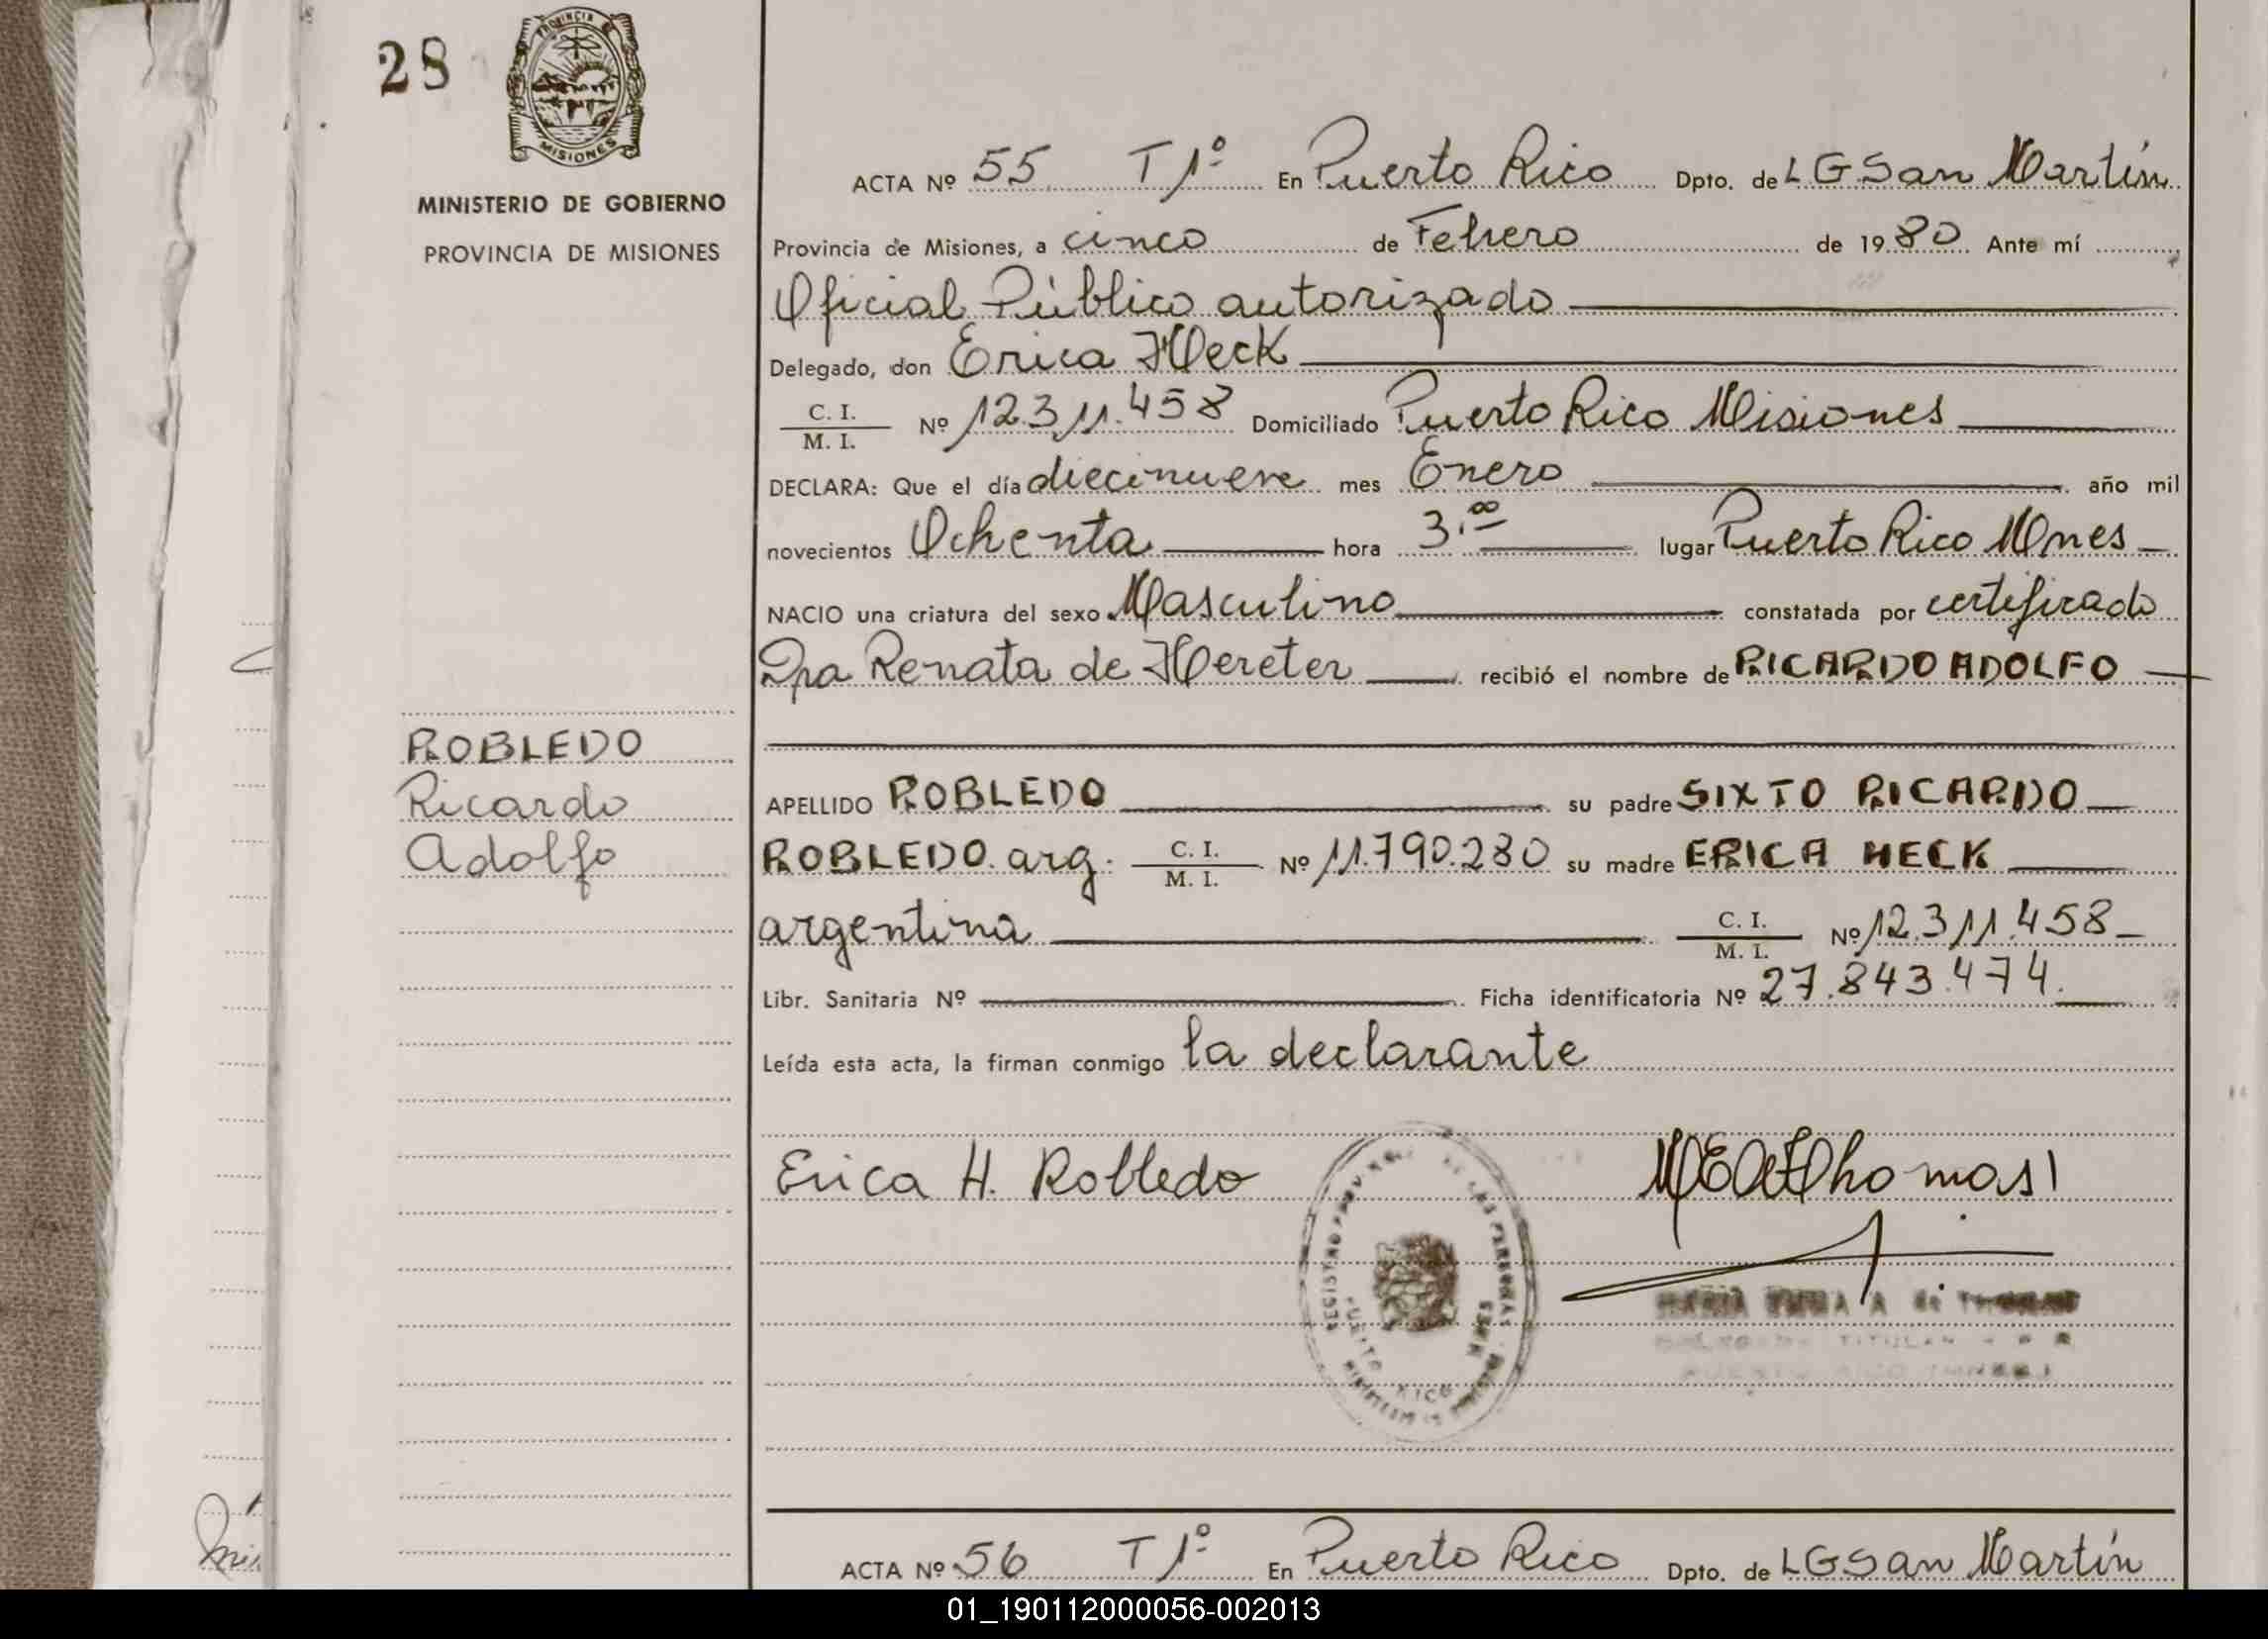 28
PROVINCIA DE
MISIONES
MINISTERIO DE GOBIERNO
PROVINCIA DE MISIONES
ROBLEDO
Ricardo
Adolfo
ACTA Nº 55 T 1º En Puerto Rico Dpto. de LGSan Martín
Provincia de Misiones, a cinco de Febrero de 1980 Ante mí
Oficial Público autorizado
Delegado, don Erica Heck
C. I.
M. I. Nº 12.311.458 Domiciliado Puerto Rico Misiones
DECLARA: Que el día diecinueve mes Enero año mil
novecientos Ochenta hora 3.00 lugar Puerto Rico Mnes
NACIO una criatura del sexo Masculino constatada por certificado
Dra Renata de Hereter recibió el nombre de RICARDO ADOLFO
APELLIDO ROBLEDO su padre SIXTO RICARDO
ROBLEDO. arg. C. I.
M. I. Nº 11.790.280 su madre ERICA HECK
argentina C. I.
M. I. Nº 12.311.458
Libr. Sanitaria Nº Ficha identificatoria Nº 27.843.474.
Leída esta acta, la firman conmigo la declarante
Erica H. Robledo
REGISTRO DE LAS PERSONAS
PUERTO RICO
MARIA A de
TITULAR
ACTA Nº 56 T 1º En Puerto Rico Dpto. de LGSan Martín
01_190112000056-002013